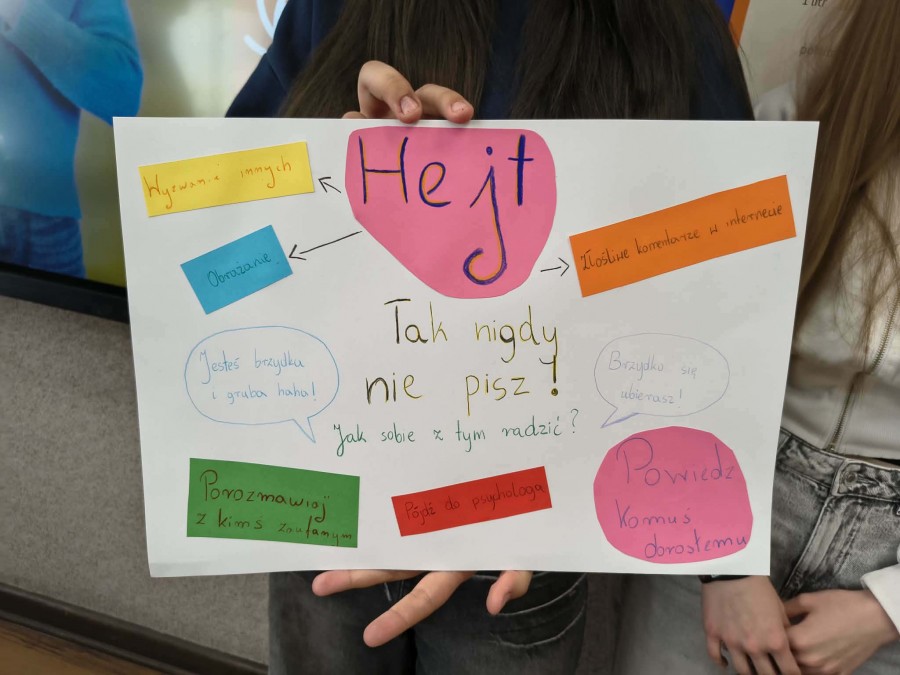 Hejt
Wyzwanie innych
Obrażanie
Złośliwe komentarze w internecie
Tak nigdy
nie pisz!
Jesteś brzydka
i gruba haha!
Brzydko się
ubierasz!
Jak sobie z tym radzić?
Porozmawiaj
z kimś zaufanym
Pójdź do psychologa
Powiedz
komuś
dorosłemu